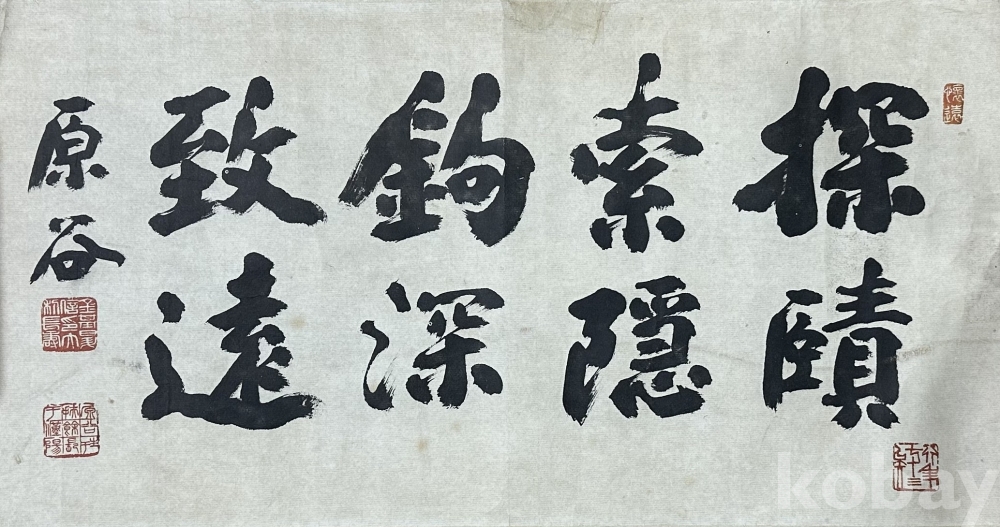 探賾
索隱
鉤深
致遠
原谷
懷遠
kobay